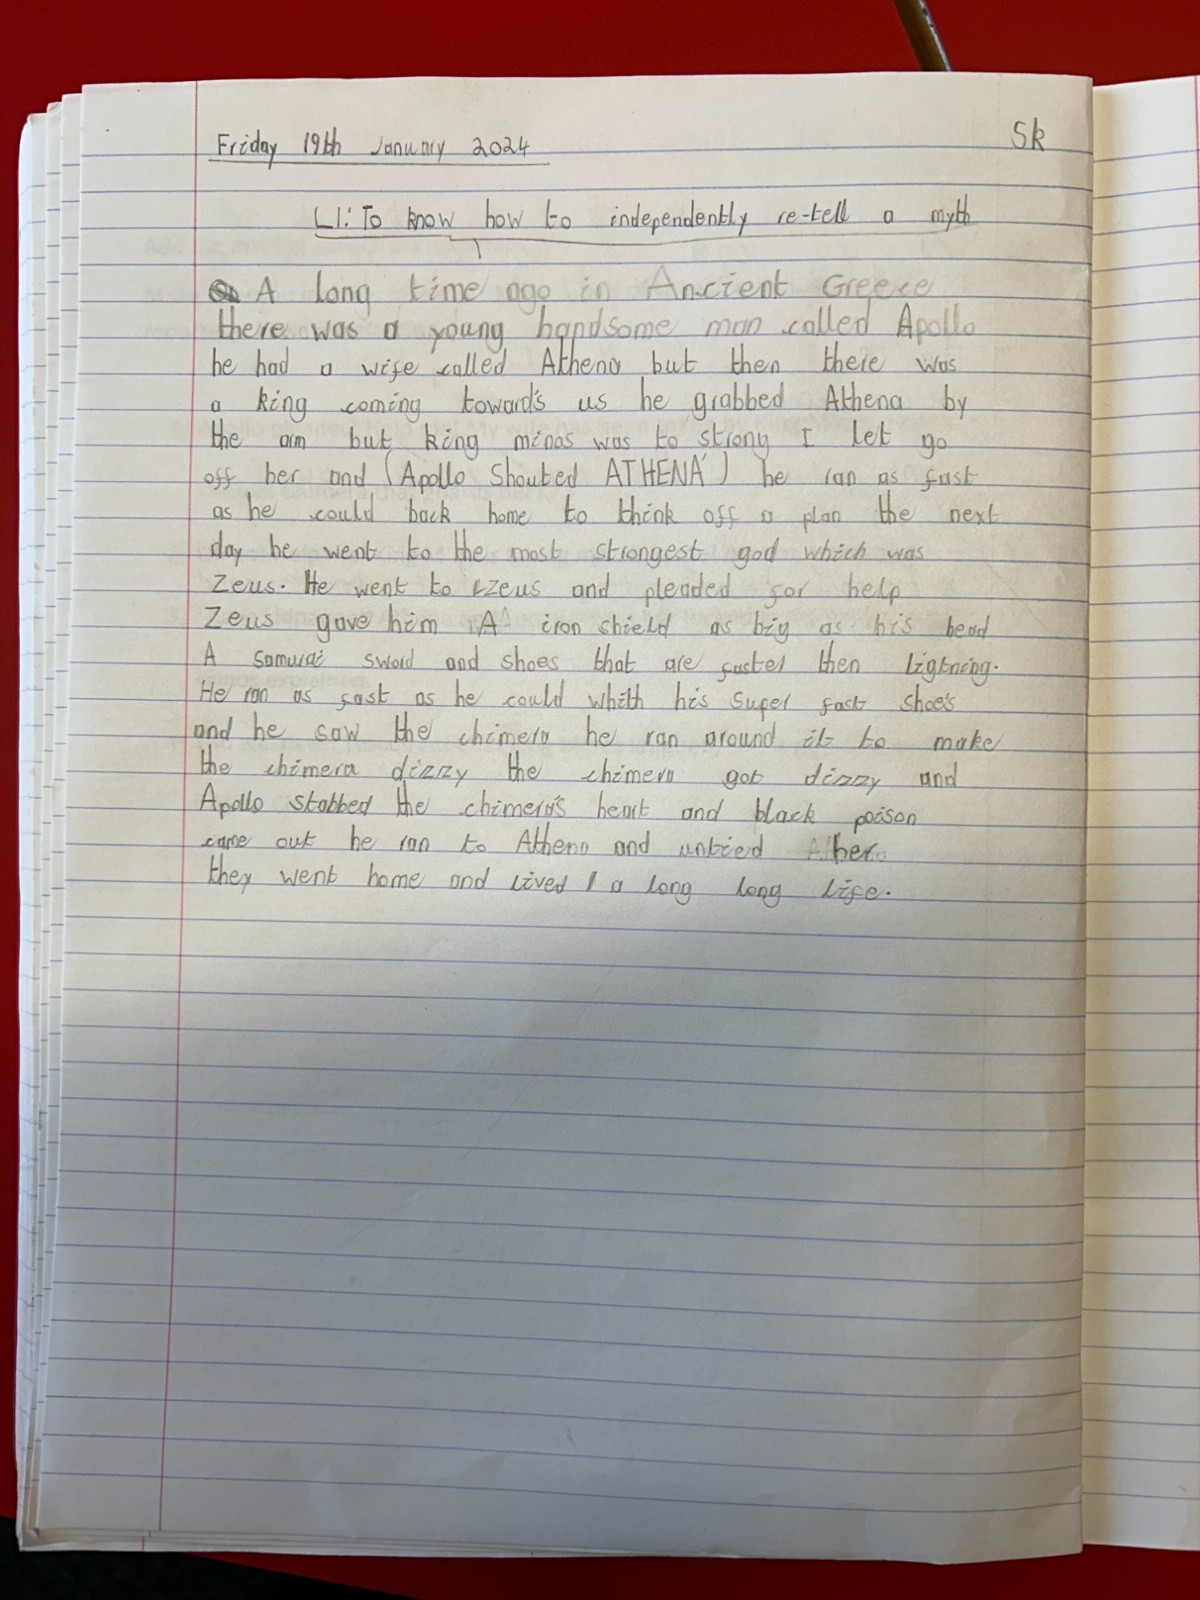 Friday 19th January 2024
Sk
LI: To know how to independently re-tell a myth
A long time ago in Ancient Greece
there was a young handsome man called Apollo
he had a wife called Athena but then there was
a king coming toward's us he grabbed Athena by
the arm but king minas was to strong I let go
off her and (Apollo Shouted ATHENA') he ran as fast
as he could back home to think off a plan the next
day he went to the most strongest god which was
Zeus. He went to Zeus and pleaded for help
Zeus gave him A iron shield as big as his head
A Samurai sword and shoes that are faster then ligtning.
He ran as fast as he could whith his super fast shoe's
and he saw the chimera he ran around it to make
the chimera dizzy the chimera got dizzy and
Apollo stabbed the chimera's heart and black poison
came out he ran to Athena and untied her
they went home and lived a long long life.